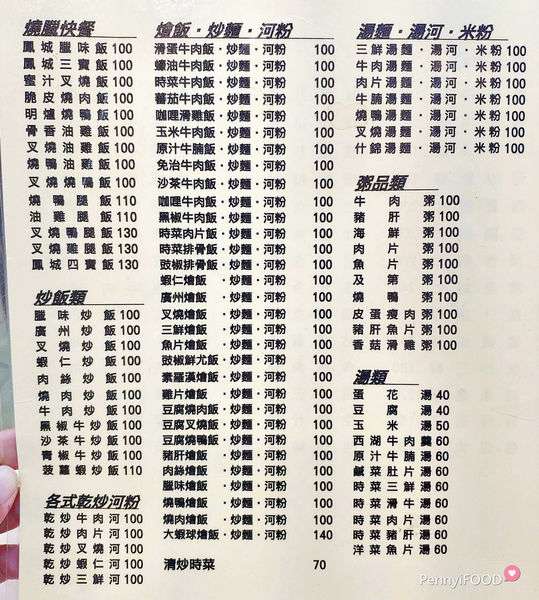 燒臘快餐
鳳城臘味飯 100
鳳城三寶飯 100
蜜汁叉燒飯 100
脆皮燒肉飯 100
明爐燒鴨飯 100
骨香油雞飯 100
燒鴨油雞飯 100
叉燒油雞飯 100
叉燒燒鴨飯 100
燒鴨腿飯 110
油雞腿飯 110
叉燒鴨腿飯 130
叉燒雞腿飯 130
鳳城四寶飯 130
炒飯類
臘味炒飯 100
廣州炒飯 100
叉燒炒飯 100
蝦仁炒飯 100
肉絲炒飯 100
燒肉炒飯 100
牛肉炒飯 100
黑椒牛炒飯 100
沙茶牛炒飯 100
青椒牛炒飯 100
菠蘿蝦炒飯 110
各式乾炒河粉
乾炒牛肉河 100
乾炒肉片河 100
乾炒叉燒河 100
乾炒蝦仁河 100
乾炒三鮮河 100
燴飯・炒麵・河粉
滑蛋牛肉飯・炒麵・河粉 100
蠔油牛肉飯・炒麵・河粉 100
時菜牛肉飯・炒麵・河粉 100
蕃茄牛肉飯・炒麵・河粉 100
咖哩滑雞飯・炒麵・河粉 100
玉米牛肉飯・炒麵・河粉 100
原汁牛腩飯・炒麵・河粉 100
免治牛肉飯・炒麵・河粉 100
沙茶牛肉飯・炒麵・河粉 100
咖哩牛肉飯・炒麵・河粉 100
黑椒牛肉飯・炒麵・河粉 100
時菜肉片飯・炒麵・河粉 100
時菜排骨飯・炒麵・河粉 100
豉椒排骨飯・炒麵・河粉 100
蝦仁燴飯・炒麵・河粉 100
廣州燴飯・炒麵・河粉 100
叉燒燴飯・炒麵・河粉 100
三鮮燴飯・炒麵・河粉 100
魚片燴飯・炒麵・河粉 100
豉椒鮮尤飯・炒麵・河粉 100
素羅漢燴飯・炒麵・河粉 100
雞片燴飯・炒麵・河粉 100
豆腐燒肉飯・炒麵・河粉 100
豆腐叉燒飯・炒麵・河粉 100
豆腐燒鴨飯・炒麵・河粉 100
豬肝燴飯・炒麵・河粉 100
肉絲燴飯・炒麵・河粉 100
臘味燴飯・炒麵・河粉 100
燒鴨燴飯・炒麵・河粉 100
燒肉燴飯・炒麵・河粉 100
大蝦球燴飯・炒麵・河粉 140
清炒時菜 70
湯麵・湯河・米粉
三鮮湯麵・湯河・米粉 100
牛肉湯麵・湯河・米粉 100
肉片湯麵・湯河・米粉 100
牛腩湯麵・湯河・米粉 100
燒鴨湯麵・湯河・米粉 100
叉燒湯麵・湯河・米粉 100
什錦湯麵・湯河・米粉 100
粥品類
牛肉粥 100
豬肝粥 100
海鮮粥 100
肉片粥 100
魚片粥 100
及第粥 100
燒鴨粥 100
皮蛋瘦肉粥 100
豬肝魚片粥 100
香菇滑雞粥 100
湯類
蛋花湯 40
豆腐湯 40
玉米湯 50
西湖牛肉羹 60
原汁牛腩湯 60
鹹菜肚片湯 60
時菜三鮮湯 60
時菜滑牛湯 60
時菜肉片湯 60
時菜豬肝湯 60
洋菜魚片湯 60
PennyIFOOD